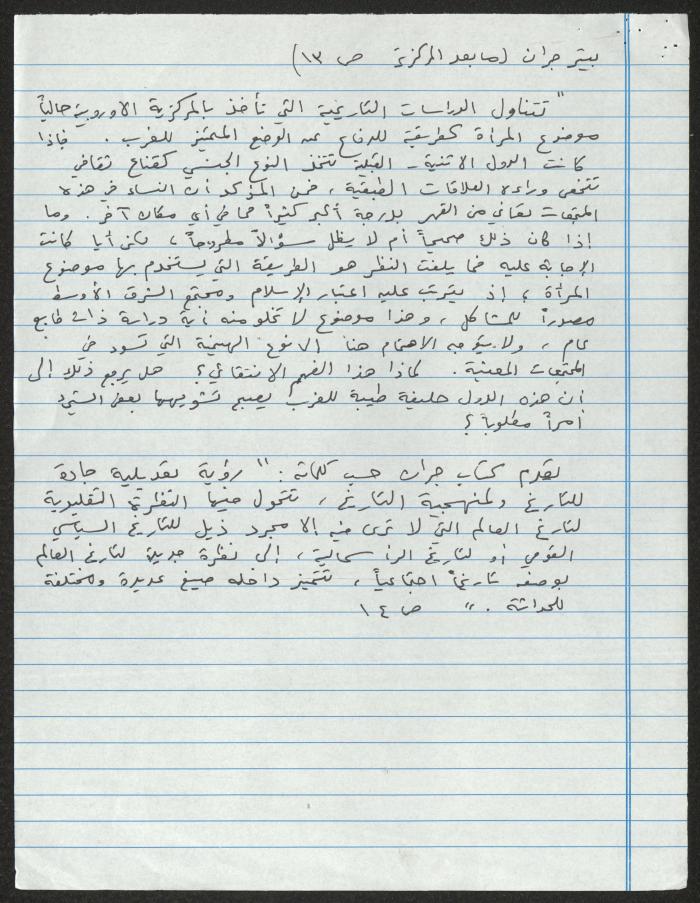 بيتر جران (ما بعد المركزية ص ١٣)
"تتناول الدراسات التاريخية التي تأخذ بالمركزية الاوروبية حالياً
موضوع المرأة كطريقة للدفاع عن الوضع المتميز للغرب. فإذا
كانت الدول الاثنية - القبلية تتخذ النوع الجنسي كقناع ثقافي
تتخفى وراءه العلاقات الطبقية، فمن المؤكد أن النساء في هذه
المجتمعات تعاني من القهر بدرجة أكبر كثيراً مما في أي مكان آخر. وما
إذا كان ذلك صحيحاً أم لا يظل سؤالاً مطروحاً، لكن أيا كانت
الإجابة عليه فما يلفت النظر هو الطريقة التي يستخدم بها موضوع
المرأة؛ إذ يترتب عليه اعتبار الإسلام ومجتمع الشرق الأوسط
مصدراً للمشاكل، وهذا موضوع لا تخلو منه أية دراسة ذات طابع
عام، ولا يتوجه الاهتمام هنا إلا نوع الهيمنة التي تسود في
المجتمعات المعنية. لماذا هذا الفهم الانتقائي؟ هل يرجع ذلك إلى
أن هذه الدول حليفة طيبة للغرب يصبح تشويهها بعض الشيء
أمراً مطلوباً؟
يقدم كتاب جران حسب كلماته: "رؤية تعديلية جادة
للتاريخ ولمنهجية التاريخ، تتحول فيها النظرة التقليدية
لتاريخ العالم التي لا ترى فيه إلا مجرد ذيل للتاريخ السياسي
القومي أو لتاريخ الرأسمالية، إلى نظرة جديدة لتاريخ العالم
بوصفه تاريخاً اجتماعياً، تتميز داخله صيغ عديدة ومختلفة
للحداثة." ص ١٤